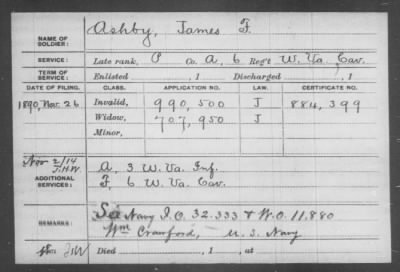 NAME OF SOLDIER: Ashby, James F.
SERVICE: Late rank, P Co. A, 6 Reg't W. Va. Cav.
TERM OF SERVICE: Enlisted , 1 Discharged , 1
DATE OF FILING. CLASS. APPLICATION NO. LAW. CERTIFICATE NO.
1890, Nov. 26 Invalid, 990,500 J 884,399
Widow, 707,950 J
Minor,
Nov 2/14
J.H.W. A, 3 W. Va. Inf.
ADDITIONAL SERVICES: F, 6 W. Va. Cav.
See Navy I.O. 32.333 & W.O. 11.880
REMARKS: Wm Crawford, U.S. Navy
Died , 1 , at